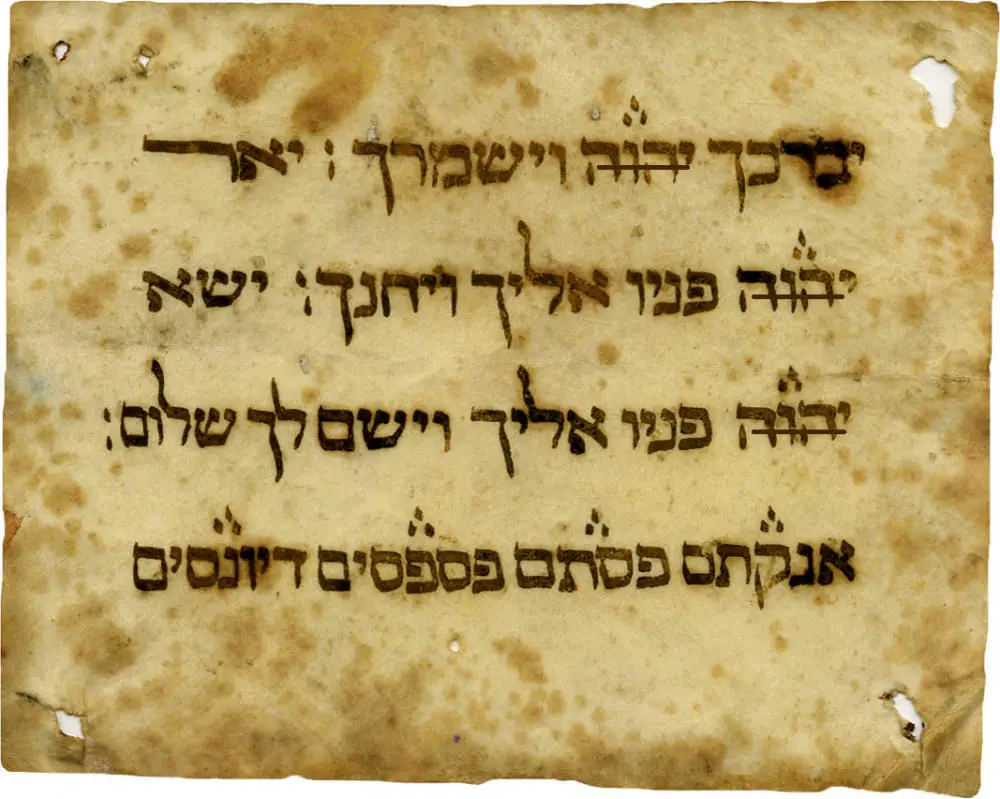 יברכך יהוה וישמרך : יאר
יהוה פניו אליך ויחנך : ישא
יהוה פניו אליך וישם לך שלום:
אנקתם פסתם פספסים דיונסים